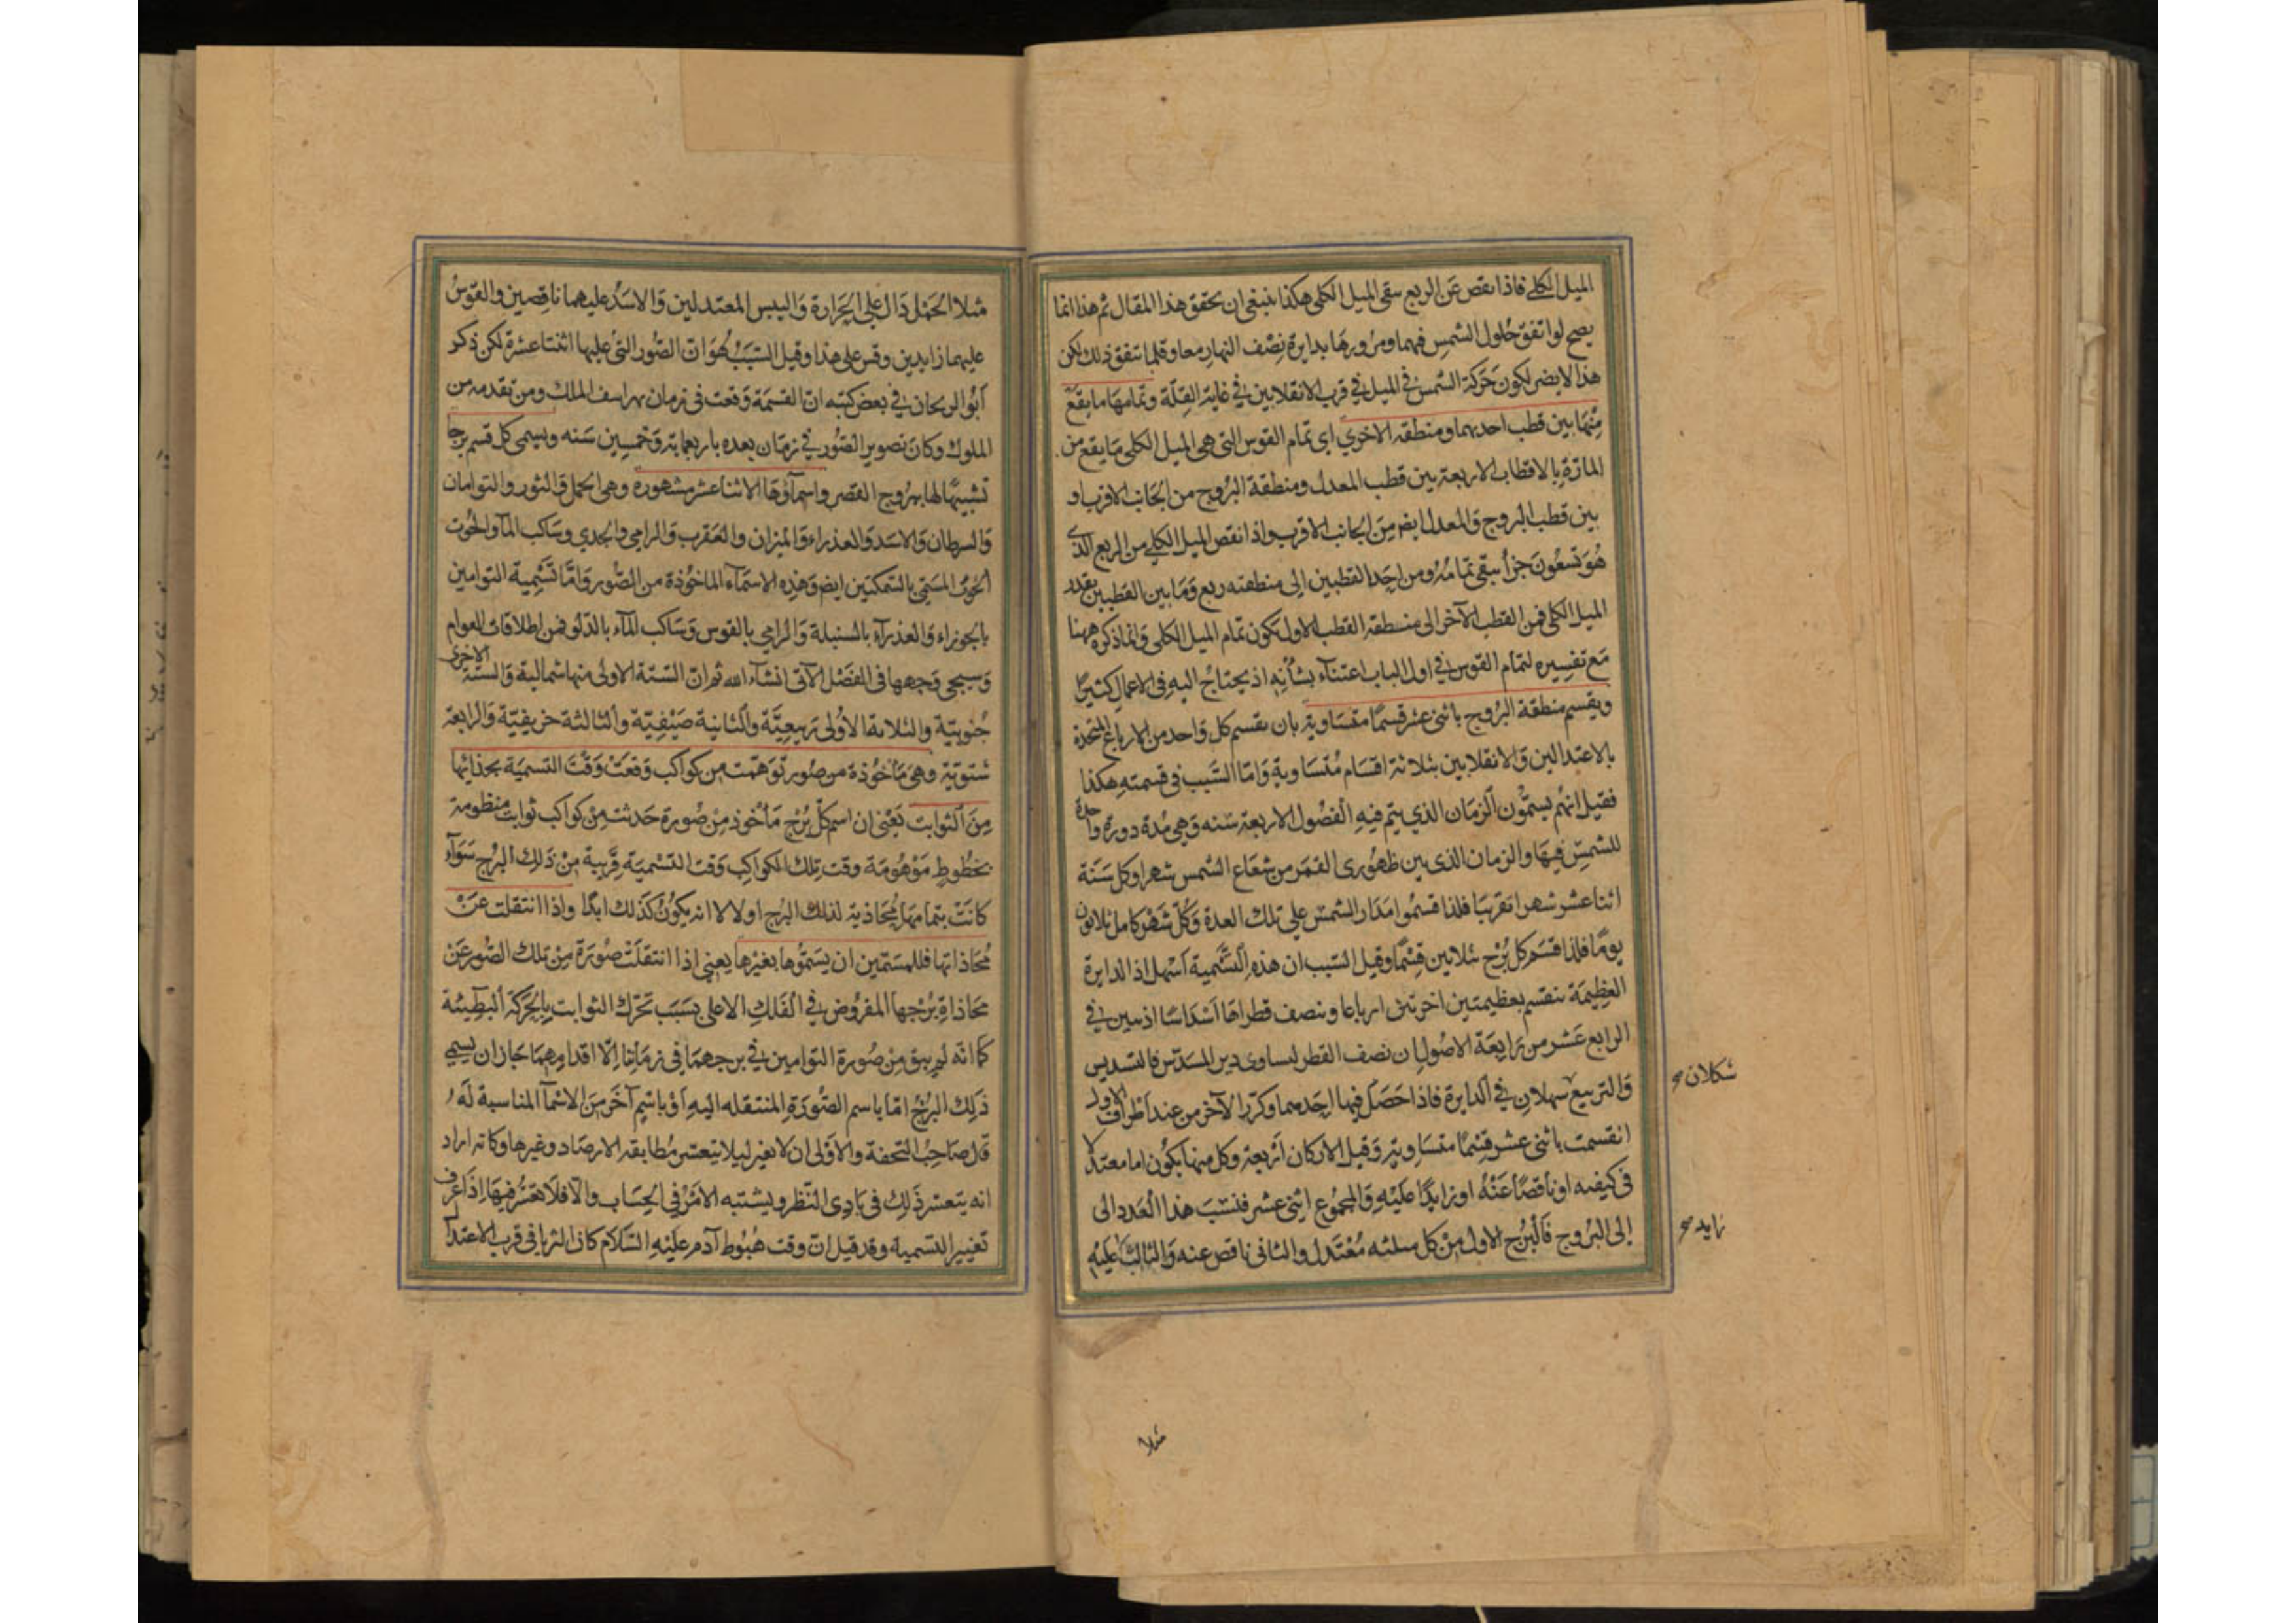 الميل الكلي فاذا نقص عن الربع يبقى الميل الكلي هكذا ينبغي ان يحقق هذا المقال ثم هذا انما
يصح لو اتفق حلول الشمس فيهما ومرورها بدايرة نصف النهار معا وقلما يتفق ذلك لكن
هذا لا يضر لكون حركة الشمس في الميل في قرب الانقلابين في غاية القلة وتمامها ما يقع
منها بين قطب احدهما ومنطقة الاخرى اي تمام القوس التي هي الميل الكلي ما يقع من
المارة بالاقطاب الاربعة بين قطب المعدل ومنطقة البروج من الجانب الاقرب او
بين قطب البروج والمعدل ايض من الجانب الاقرب واذا نقص الميل الكلي من الربع الذي
هو تسعون جزأ يبقى تمامه ومن احد القطبين الى منطقته ربع وما بين القطبين بقدر
الميل الكلي فمن القطب الآخر الى منطقة القطب الاول يكون تمام الميل الكلي وانما ذكره ههنا
مع تفسيره لتمام القوس في اول الباب اعتناء بشأنه اذ يحتاج اليه في الاعمال كثيرا
ويقسم منطقة البروج باثني عشر قسما متساوية بان يقسم كل واحد من الارباع المتحدة
بالاعتدالين والانقلابين بثلاثة اقسام متساوية واما السبب في قسمته هكذا
فقيل انهم يسمون الزمان الذي يتم فيه الفصول الاربعة سنه وهي مدة دورة واحدة
للشمس فيها والزمان الذي بين ظهوري القمر من شعاع الشمس شهرا وكل سنة
اثنا عشر شهرا تقريبا فلذا قسموا مدار الشمس على تلك العدة وكل شهر كامل ثلاثون
يوما فلذا قسم كل برج ثلاثين قسما وقيل السبب ان هذه التسمية اسهل اذ الدايرة
العظيمة تنقسم بعظيمتين اخرتين ارباعا وبنصف قطراها اسداسا اذ بين في
الرابع عشر من رابعة الاصول ان نصف القطر ليساوي المسدس فالتسديس
والتربيع سهلان في الدايرة فاذا حصل فيها احدهما وكرر الآخر من عند اطراف الاول
انقسمت باثني عشر قسما متساوية وقيل الاركان اربعة وكل منها يكون اما معتدلا
في كيفيه او ناقصا عنه او زايدا عليه والمجموع اثني عشر فنسب هذا العدد الى
الى البروج فالبرج الاول من كل مثلثه معتدل والثاني ناقص عنه والثالث عليه
شكلان
زايد
مثلا
مثلا الحمل دال على الحرارة واليبس المعتدلين والاسد عليهما ناقصين والقوس
عليهما زايدين وقس على هذا وقيل السبب هو ان الصور التي عليها اثنتا عشرة لكن ذكر
ابو الريحان في بعض كتبه ان القسمة وقعت في زمان بهراسف الملك ومن تقدمه من
الملوك وكان تصوير الصور في زمان بعده باربعماية وخمسين سنه ويسمى كل قسم برجا
تشبيها لها ببروج القصر واسماؤها الاثنا عشر مشهورة وهي الحمل والثور والتوامان
والسرطان والاسد والعذراء والميزان والعقرب والرامي والجدي وساكب الماء والحوت
الحوت المسمى بالسمكتين ايض وهذه الاسماء الماخوذة من الصور واما تسمية التوامين
بالجوزاء والعذراء بالسنبلة والرامي بالقوس وساكب الماء بالدلو فمن اطلاقات العوام
وسيجي وجهها في الفصل الآتي انشاء الله ثم ان الستة الاولى منها شمالية والستة الاخرى
جنوبية والثلاثة الاولى ربيعية والثانية صيفية والثالثة خريفية والرابعة
شتوية وهي ماخوذة من صور توهمت من كواكب وقعت وقت التسمية بحذائها
من الثوابت يعني ان اسم كل برج مأخوذ من صورة حدثت من كواكب ثوابت منظومة
بخطوط موهومة وقت تلك الكواكب وقت التسمية قريبة من ذلك البرج سواء
كانت بتمامها محاذية لذلك البرج اولا لا انه يكون كذلك ابدا واذا انتقلت عن
محاذاتها فللمسمين ان يسموها بغيرها يعني اذا انتقلت صورة من تلك الصور عن
محاذاة برجها المفروض في الفلك الاعلى بسبب تحرك الثوابت بالحركة البطيئة
كما انه لم يبق من صورة التوامين في برجهما في زماننا الا اقدامهما جاز ان يسمى
ذلك البرج اما باسم الصورة المنتقله اليه او باسم آخر من الاسماء المناسبة له
قال صاحب التحفة والاولى ان لا يغير ليلا يتعسر مطابقة الارصاد وغيرها وكانه اراد
انه يتعسر ذلك في بادي النظر ويشتبه الامر في الحساب والا فلا تعسر فيها اذا عرف
تغيير التسمية وقد قيل ان وقت هبوط آدم عليه السلام كان الثريا في قرب الاعتدال